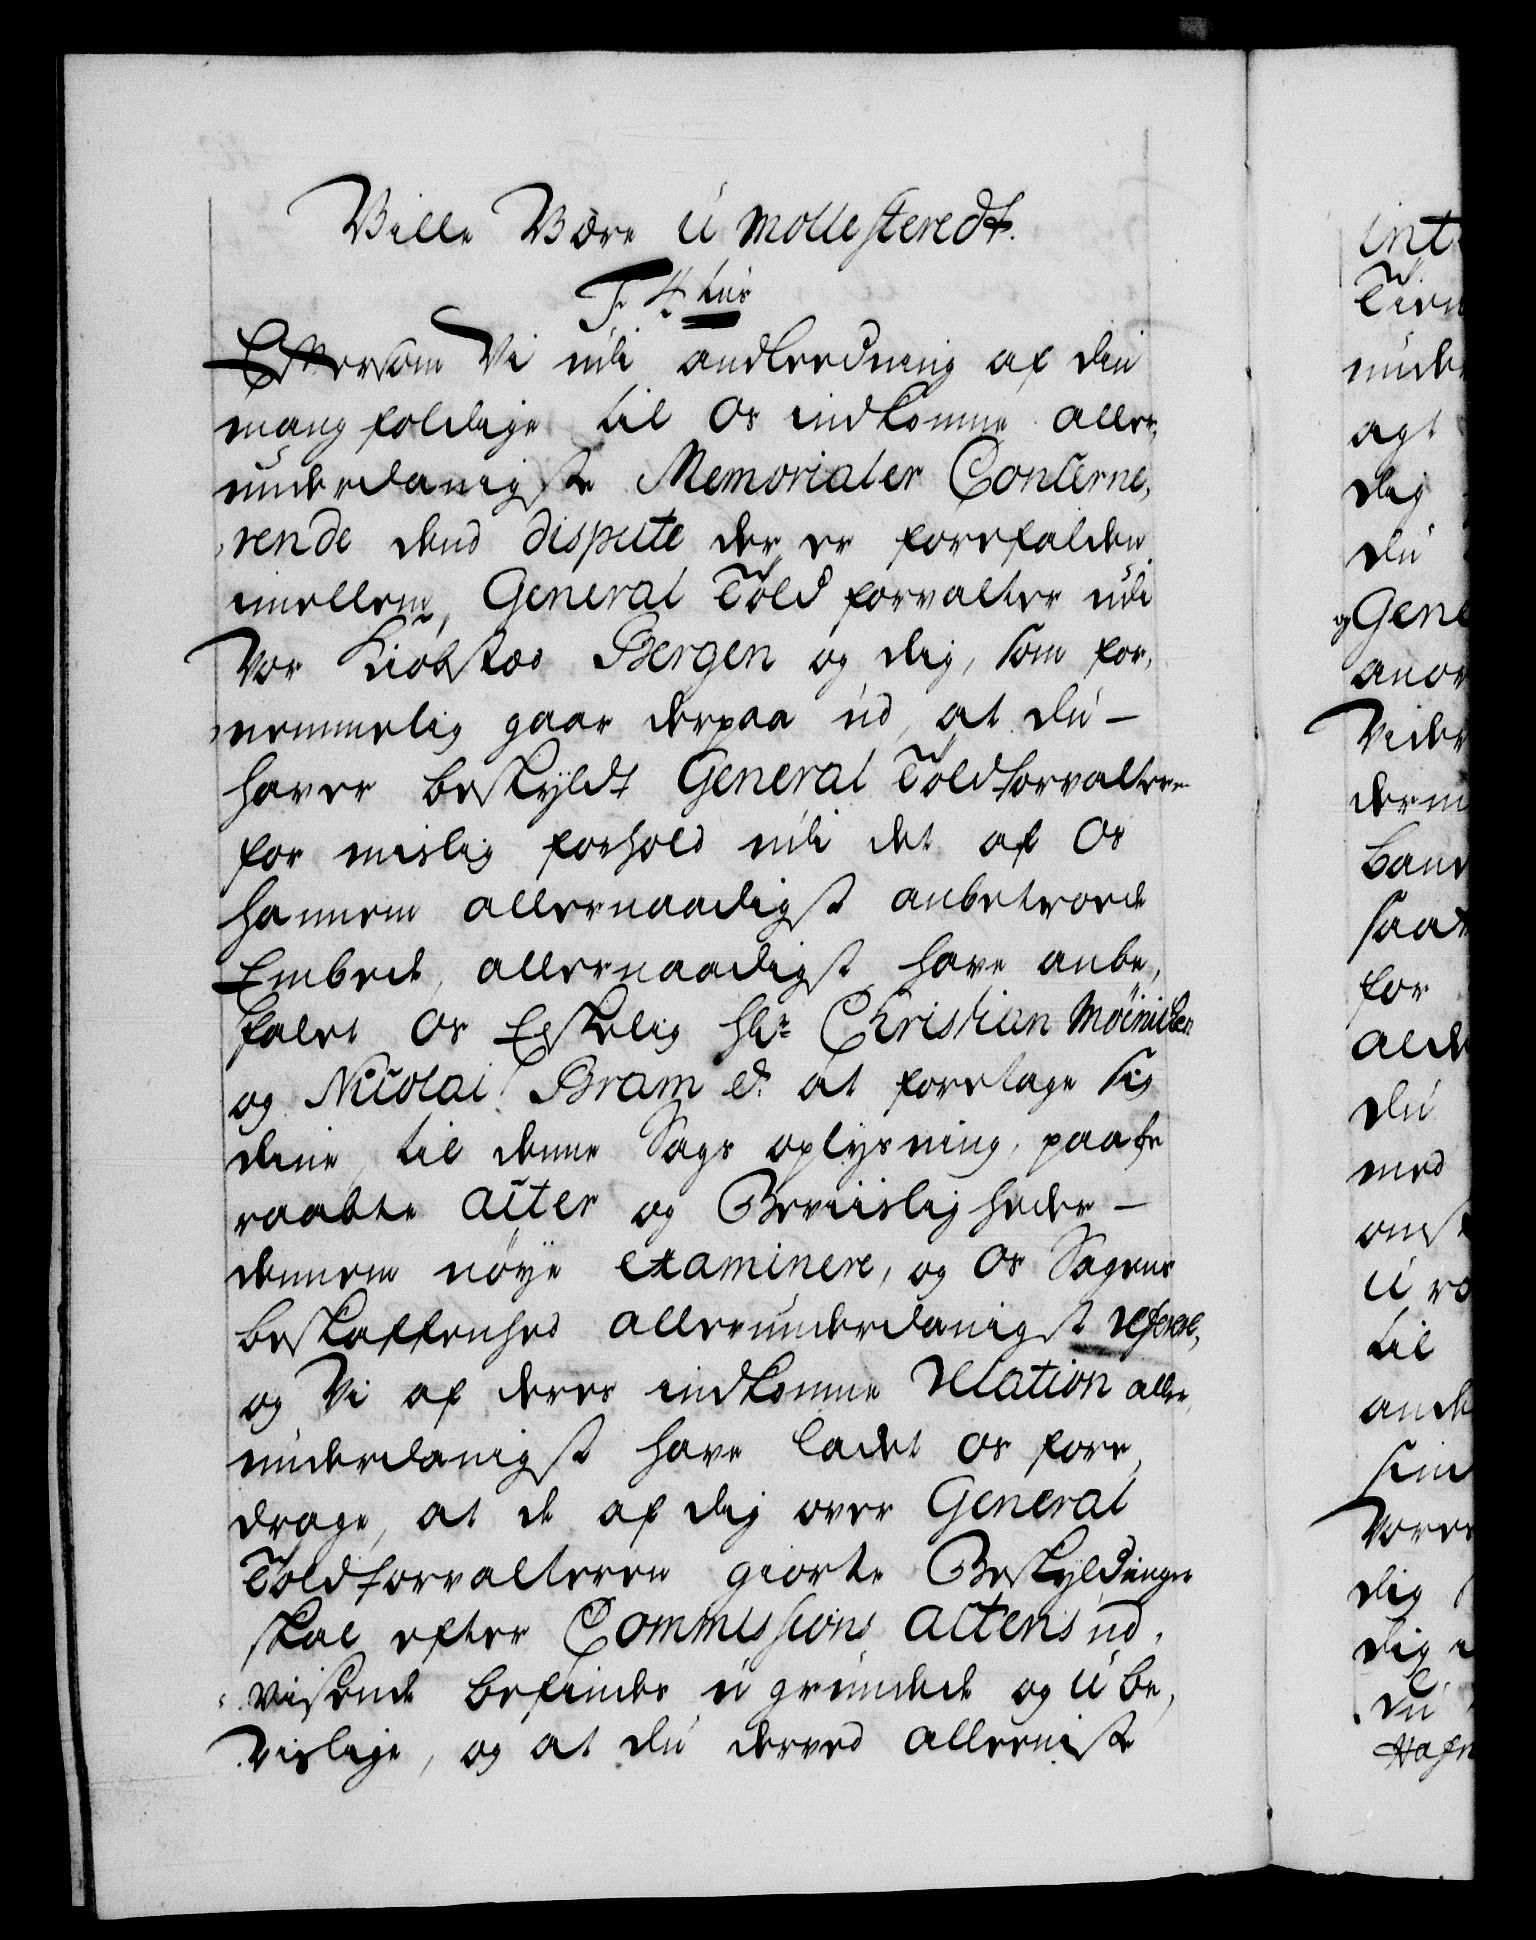 Ville Være u mollesteredt.
F. 4 tus
Eftersom Vi udi andleedning af din
mangfoldige til Os indkomne aller,
underdanigste Memorialer Concerne,
rende dend dispute der er forefalden
imellem, General Told forvalter udi
Vor Kiøbstad Bergen og dig, som for,
nemmelig gaar derpaa ud, at du -
haver beskyldt General Toldforvalteren
for mislig forhold udi det af Os
hannem allernaadigst anbetroede
Embede, allernaadigst have anbe,
falet Os Elskelig Hr: Christian Möinichen
og Nicolai Bram d. at foretage sig
dine, til denne Sags oplysning, paabe
raabte Acter og Beviisligheder -
dennem nöye examinere, og Os Sagens
beskaffenhed allerunderdanigst referere,
og Vi af deres indkomne relation aller,
underdanigst have ladet Os fore,
drage, at de af dig over General
Toldforvalteren giorte Beskyldinger
skal efter Commissions actens ud,
visende befindes u grundede og u be,
vislige, og at du derved allerniste
int
Tien
unde
agt
dig
du
og Gene
anor
Vider
derm
band
saa
for
alde
du
med
omst
U ro
til
ande
sin
Vores
dig
dig
du
Hafn